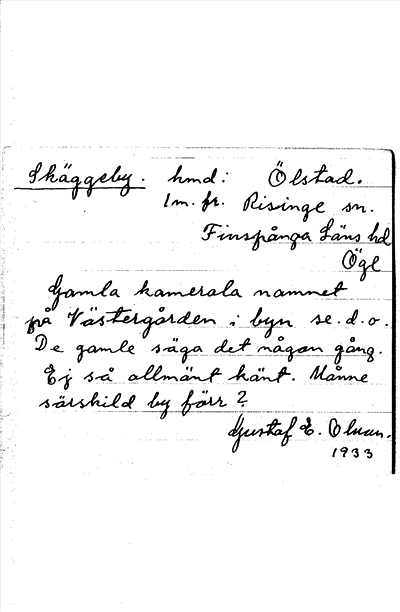 Skäggeby. hmd: Ölstad.
1 m. fr. Risinge sn.
Finspånga Läns hd
Ögl
Gamla kamerala namnet
på Västergården i byn se. d. o.
De gamle säga det någon gång.
Ej så allmänt känt. Månne
särskild by förr?
Gustaf E. Olsson.
1933